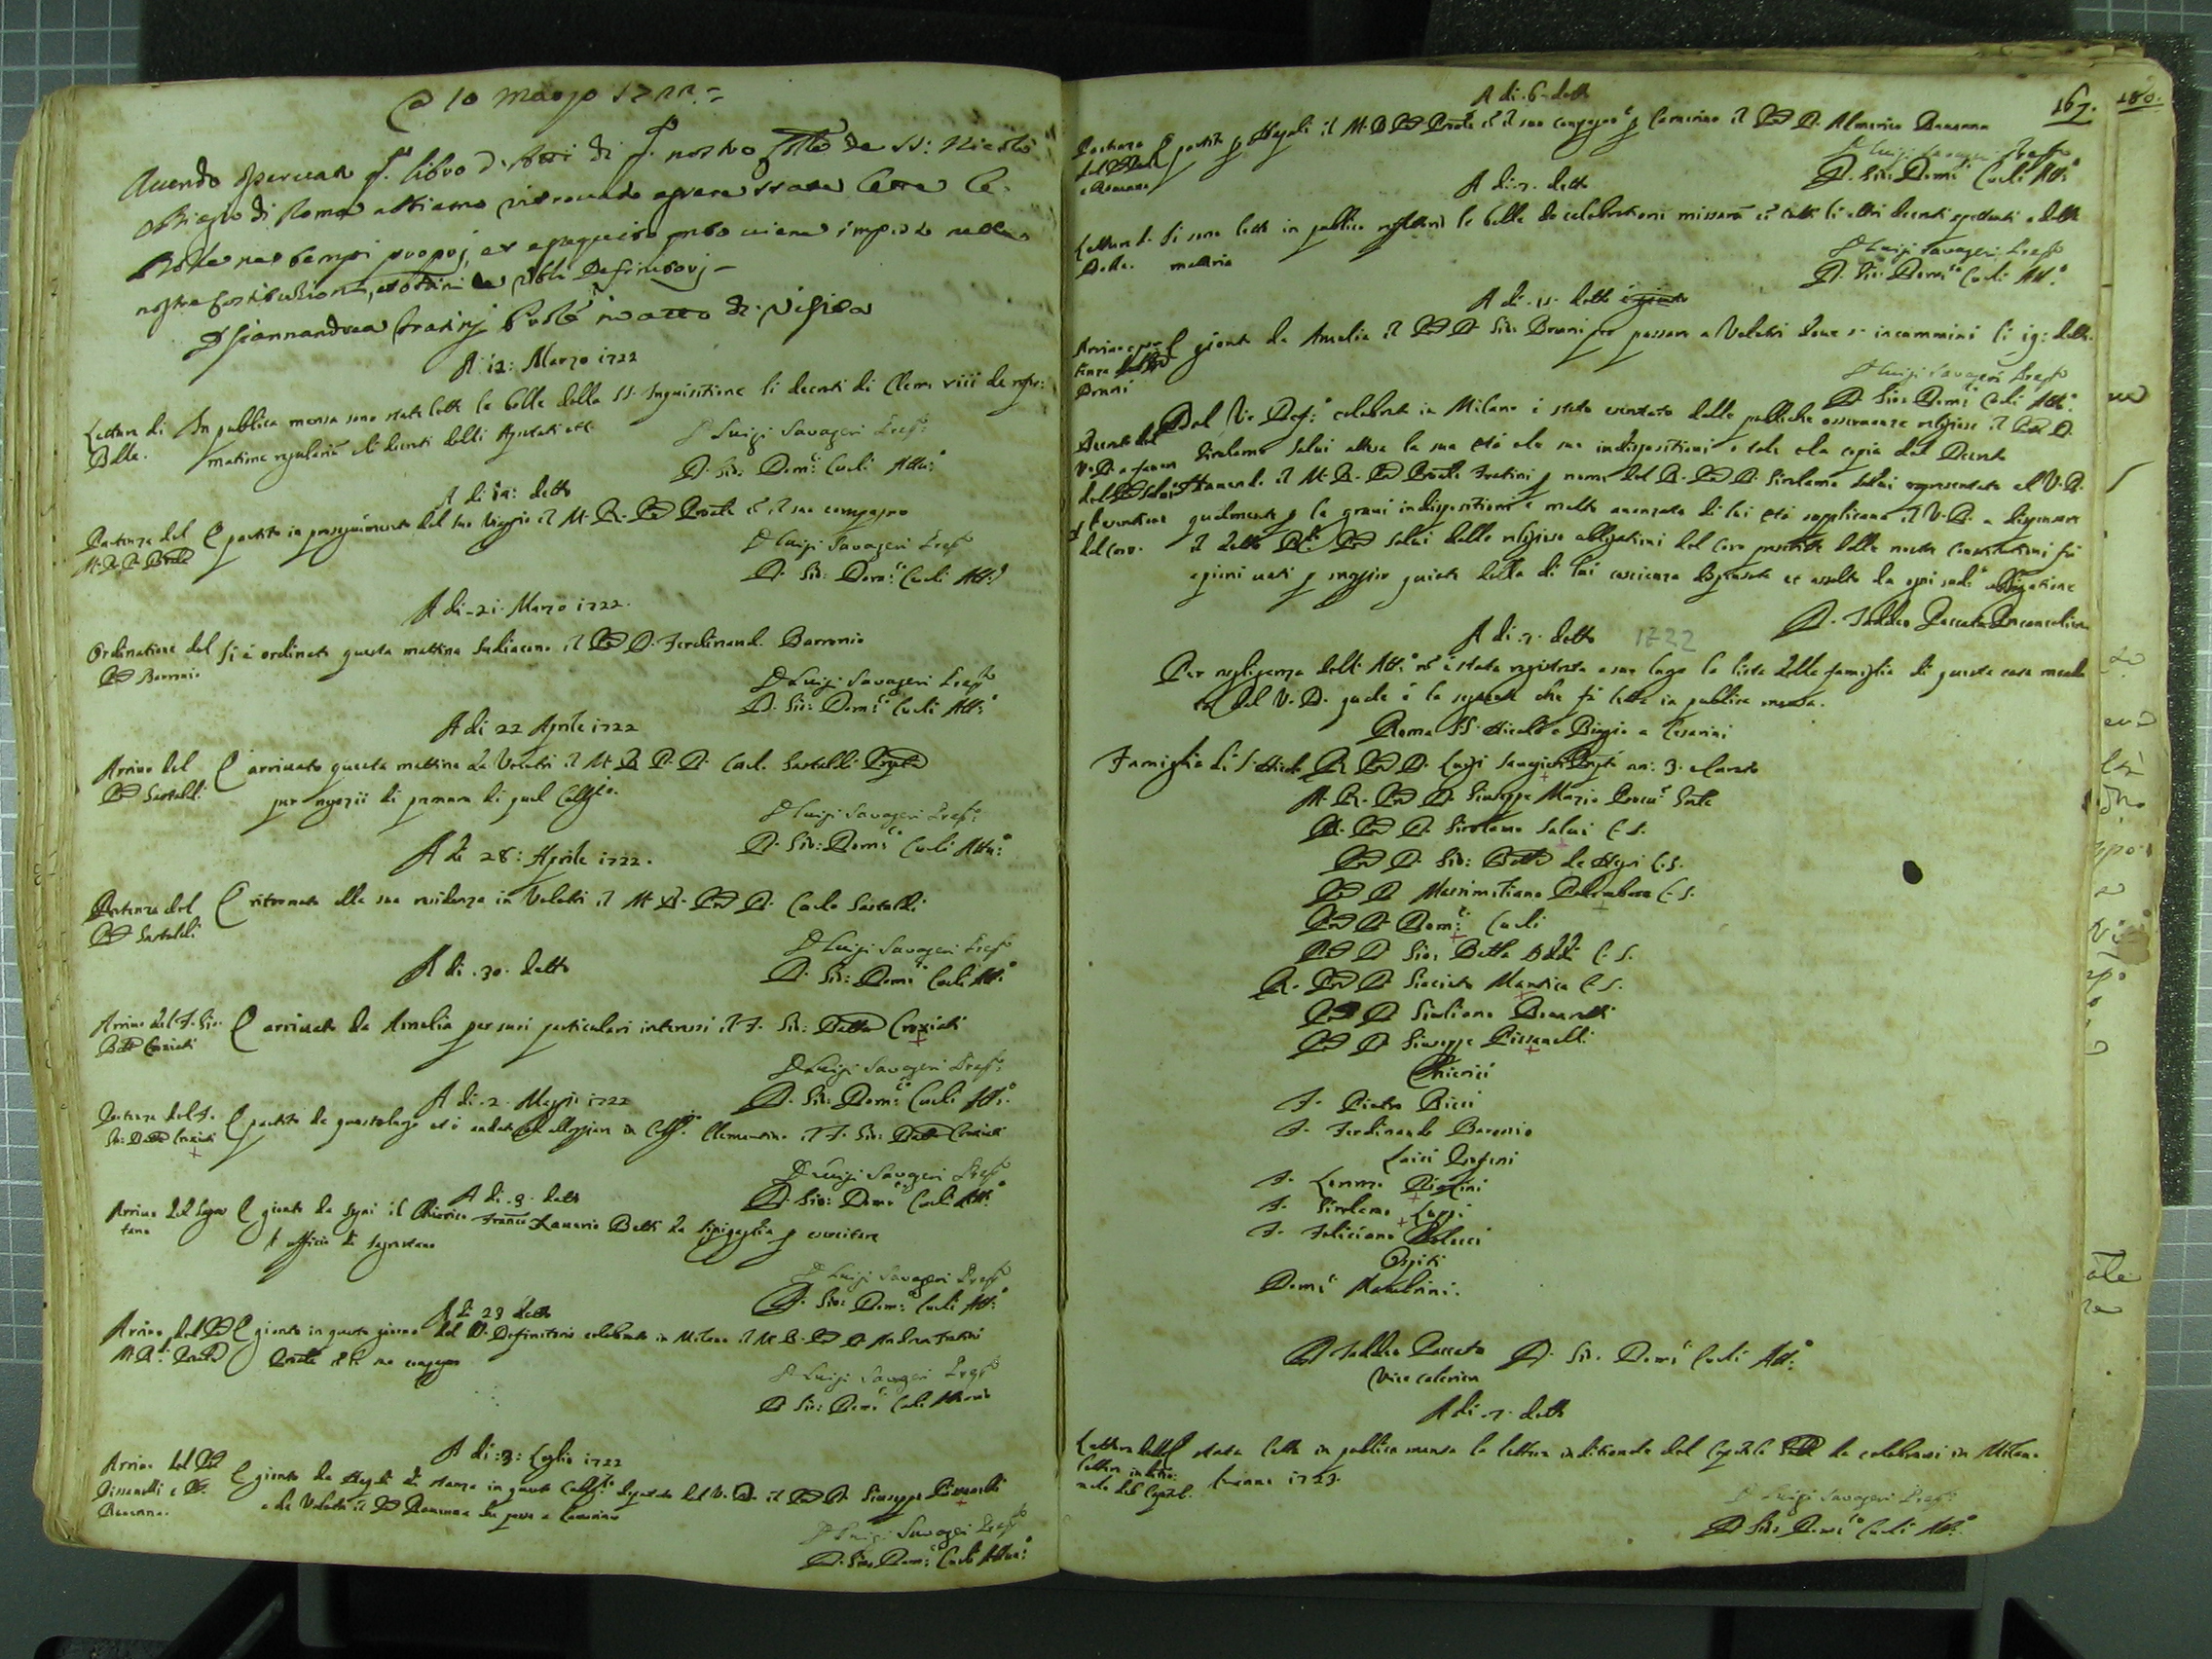 @ 10 Marzo 1722
Avendo osservato q.to libro d'Atti di q.to nostro Coll.o de SS: Nicolò
e Biagio di Roma abbiamo ritrovato essere state lette le
Bolle ne tempi proprj, et eseguito quanto viene imposto nelle
nostre Costituzioni, et ordini de Vbli Definitorj
D Giannandrea Fratinj Prov.le in atto di visita
A 12: Marzo 1722
Lettura di
Bolle.
In publica mensa sono state lette le bolle della SS. Inquisitione li decreti di Clem: viii de refor:
matione regularium e li decreti delli Apostati ett.
D Luigi Savageri Prep.to
D. Gio: Dom.co Carli Attu:o
A di 14: detto
Partenza del
M. R. P. Prole
È partito in proseguimento del suo viaggio il M. R. P. Prole et il suo compagno
D Luigi Savageri Prep.to
D. Gio: Dom.co Carli Att:o
A di 21. Marzo 1722.
Ordinatione del
P. Barronio
Si è ordinato questa mattina Sudiacono il P. D. Ferdinand. Barronio
D Luigi Savageri Prep.to
D. Gio: Dom.co Carli Att:o
A di 22 Aprile 1722
Arrivo del
P. Gastaldi.
È arrivato questa mattina da Velletri il M. R. P. D. Carl. Gastaldi Prep.to
per negozii di premura di quel Collegio.
D Luigi Savageri Prep.to
D. Gio: Dom.co Carli Attu:o
A di 28: Aprile 1722.
Partenza del
P. Gastaldi
È ritornato alla sua residenza in Velletri il M. R. P. D. Carlo Gastaldi
D Luigi Savageri Prep.to
D. Gio: Dom.co Carli Att:o
A di .30. detto
Arrivo del F. Gio:
Batta Crociati
È arrivato da Amelia per suoi particulari interessi il F. Gio: Batta Crociati
D Luigi Savageri Prep.to
D. Gio: Dom.co Carli Att:o
A di .2. Maggio 1722
Partenza del F.
Gio: Batta Crociati
È partito da questo luogo et è andato ad alloggiare in Coll.o Clementino il F. Gio: Batta Crociati
D Luigi Savageri Prep.to
D. Gio: Dom.co Carli Att:o
A di .9. detto
Arrivo del Sagre
stano
È giunto da Segni il Chierico Franc.o Xaverio Betti da Sinigaglia p esercitare
l' officio di Sagrestano
D Luigi Savageri Prep.to
D. Gio: Dom.co Carli Att:o
A di 23 detto
Arrivo del
M. R. P. Prole
È giunto in questo giorno dal V. Definitorio celebrato in Milano il M. R. P. D. Andrea Fratini
Prole et il suo compagno
D Luigi Savageri Prep.to
D Gio: Dom.co Carli Attuario
A di :3: Luglio 1722
Arrivo del P.
Pissanelli e P.
È giunto da Napoli di stanza in questo Coll.o deputato dal V. D. il P. D. Giuseppe Pissanelli
e da Velletri il P. che passa a Camerino
D Luigi Savageri Prep.to
D. Gio: Dom.co Carli Attua:o
167. 180.
A di .6. detto
Partenza
del P. Prole
È partito p Napoli il M. R. P. Prole et il suo compagno e p Camerino il P. D. Almerico
D Luigi Savageri Prep.to
D. Gio: Dom.co Carli Att:o
A di .7. detto
Lettura di
Bolle.
Si sono lette in publico refettorio le bolle de celebratione missarum et tutti li altri decreti spettanti a detta
materia
D Luigi Savageri Prep.to
D. Gio: Dom.co Carli Att:o
A di .15. detto
Arrivo e par
tenza del P.
Bruni
È giunto da Amelia il P. D. Gio: Bruni per passare a Velletri dove s' incamminò li 19: detto.
D Luigi Savageri Prep.to
D. Gio: Dom.co Carli Att:o
Decreto del
V. D. a favore
del P. Salvi
p l'esentione
dal coro.
Dal Ve. Def:o celebrato in Milano è stato esentato dalle publiche osservanze religiose il P. D.
Girolamo Salvi attesa la sua età e le sue indispositioni e tale è la copia del Decreto
Havendo il M. R. P. Prole Fratini p nome del R. P. D. Girolamo Salvi rapresentato al V. D.
qualmente p le gravi indispositioni e molto avanzata di lui età supplicava il V. D. a dispensare
il detto P. Salvi dalle religiose obligationi del coro prescritte dalle nostre Constitutioni fù
e pieni voti p maggior quiete della di lui coscienza dispensato et assolto da ogni sud.a obligatione
D. Taddeo Zaccata Vicecancelliere
A di .7. detto 1722
Per negligenza delli Att.i non è stata registrata a suo luogo la lista della famiglia di questa casa manda
ta dal V. D. quale è la seguente che fù letta in publica mensa.
Roma SS. Nicolò e Biagio a Cesarini
Famiglia di S. Nicolò
R. P. D. Luigi Savageri Prep.to an: 3. elevato
M. R. P. D. Giuseppe Maria Procu.r Gnle
R. P. D. Girolamo Salvi C. S.
P. D. Gio: Batta de C. S.
P. D. Massimiliano Palombara C. S.
P. D. Dom.co Carli
P. D. Gio: Batta Baldi C. S.
R. P. D. Giacinto Mantica C. S.
P. D. Giuliano
P. D. Giuseppe Pissanelli
Chierici
F. Pietro Ricci
F. Ferdinando Baronio
Laici Professi
F. Lorenzo
F. Girolamo Lappi
F. Feliciano
Ospiti
Dom.co Mambrini.
D Taddeo Zaccata
Vice cancelier
D. Gio. Dom.co Carli Att:o
A di .7. detto
Lettura della
lettera inditio:
nale del Capitol.
È stata letta in publica mensa la lettera inditionale del Capitolo Gnle da celebrarsi in Milano
l'anno 1723.
D Luigi Savageri Prep.to
D Gio: Dom.co Carli Att:o